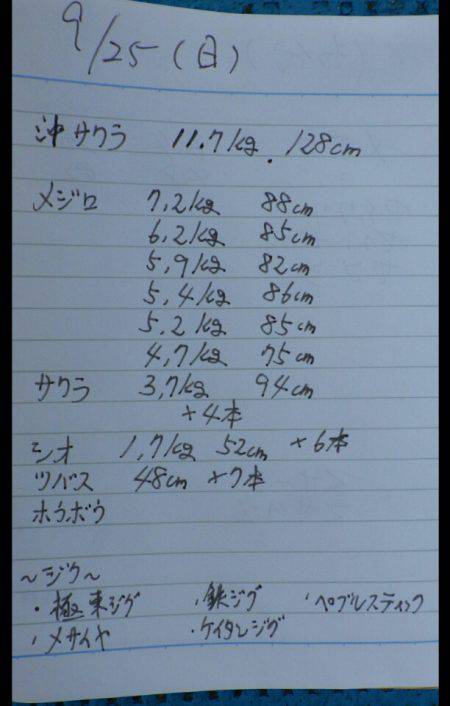 9/25(日)
沖サワラ 11.7kg. 128cm
メジロ 7,2kg 88cm
6,2kg 85cm
5,9kg 82cm
5,4kg 86cm
5,2kg 85cm
4,7kg 75cm
サワラ 3,7kg 94cm
×4本
シオ 1,7kg 52cm ×6本
ツバス 48cm ×7本
ホウボウ
〜ジグ〜
・極東ジグ ・鉄ジグ ・ペブルスティック
・メサイヤ ・ケイタンジグ